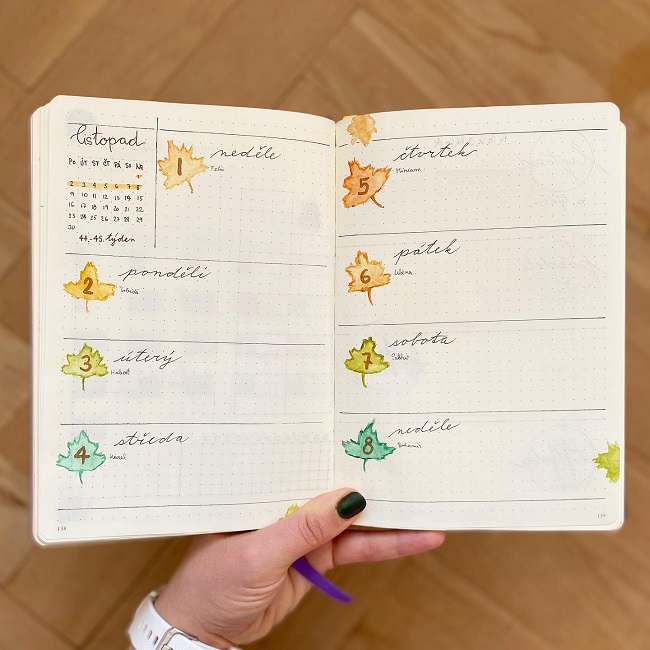 listopad
Po ÚT ST ČT PÁ SO NE
1
2 3 4 5 6 7 8
9 10 11 12 13 14 15
16 17 18 19 20 21 22
23 24 25 26 27 28 29
30
44.-45. týden
1 neděle
Felix
2 pondělí
Tobiáš
3 úterý
Hubert
4 středa
Karel
138
5 čtvrtek
Miriam
6 pátek
Liběna
7 sobota
Saskie
8 neděle
Bohumír
139